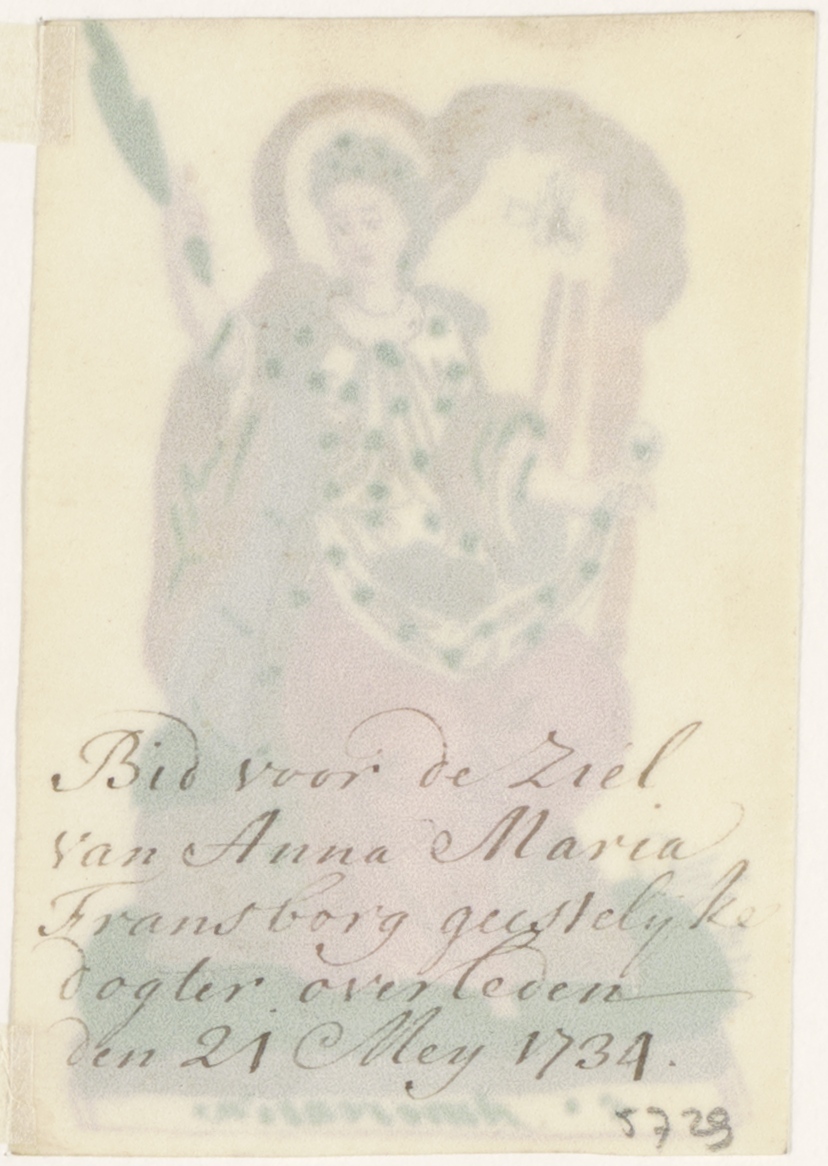 Bid voor de Ziel
van Anna Maria
Fransborg geestelyke
dogter overleden
den 21 Mey 1734.
5729